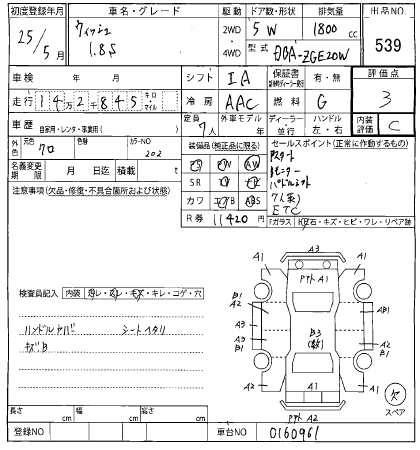 初度登録年月 車名・グレード 駆動 ドア数・形状 排気量 出品NO
25/5月 ウィッシュ 1.8S 2WD・4WD 5W 1800cc 539
型式 DBA-ZGE20W
車検 年 月 シフト IA 保証書 有・無 評価点 3
走行 14万2千845キロ・マイル 冷房 AAC 燃料 G 内装評価 C
車歴 自家用・レンタ・事業用( ) 定員 7人 外車モデル 年 ディーラー・並行 ハンドル 左・右
外色 元色 クロ 色替 カラーNO 202
装備品(純正品に限る) セールスポイント(正常に作動するもの)
名義変更期限 月 日迄 積載 t
PS PW AW
SR
カワ ABS
R券 11420円
パドルシフト
7人乗
ETC
注意事項(欠品・修復・不具合箇所および状態)
Fガラス
キズ・ヒビ・ワレ・リペア跡
検査員記入 内装
キレ・コゲ・穴
ハンドル シートヘタリ
キズB
A3
A1 A1
A1
B1
A2
A3
A3
B1
B3
AB1
A2
B1
A2 A2
A1 A1
A2
欠
スペア
長さ cm 幅 cm 高さ cm
登録NO 車台NO 0160961